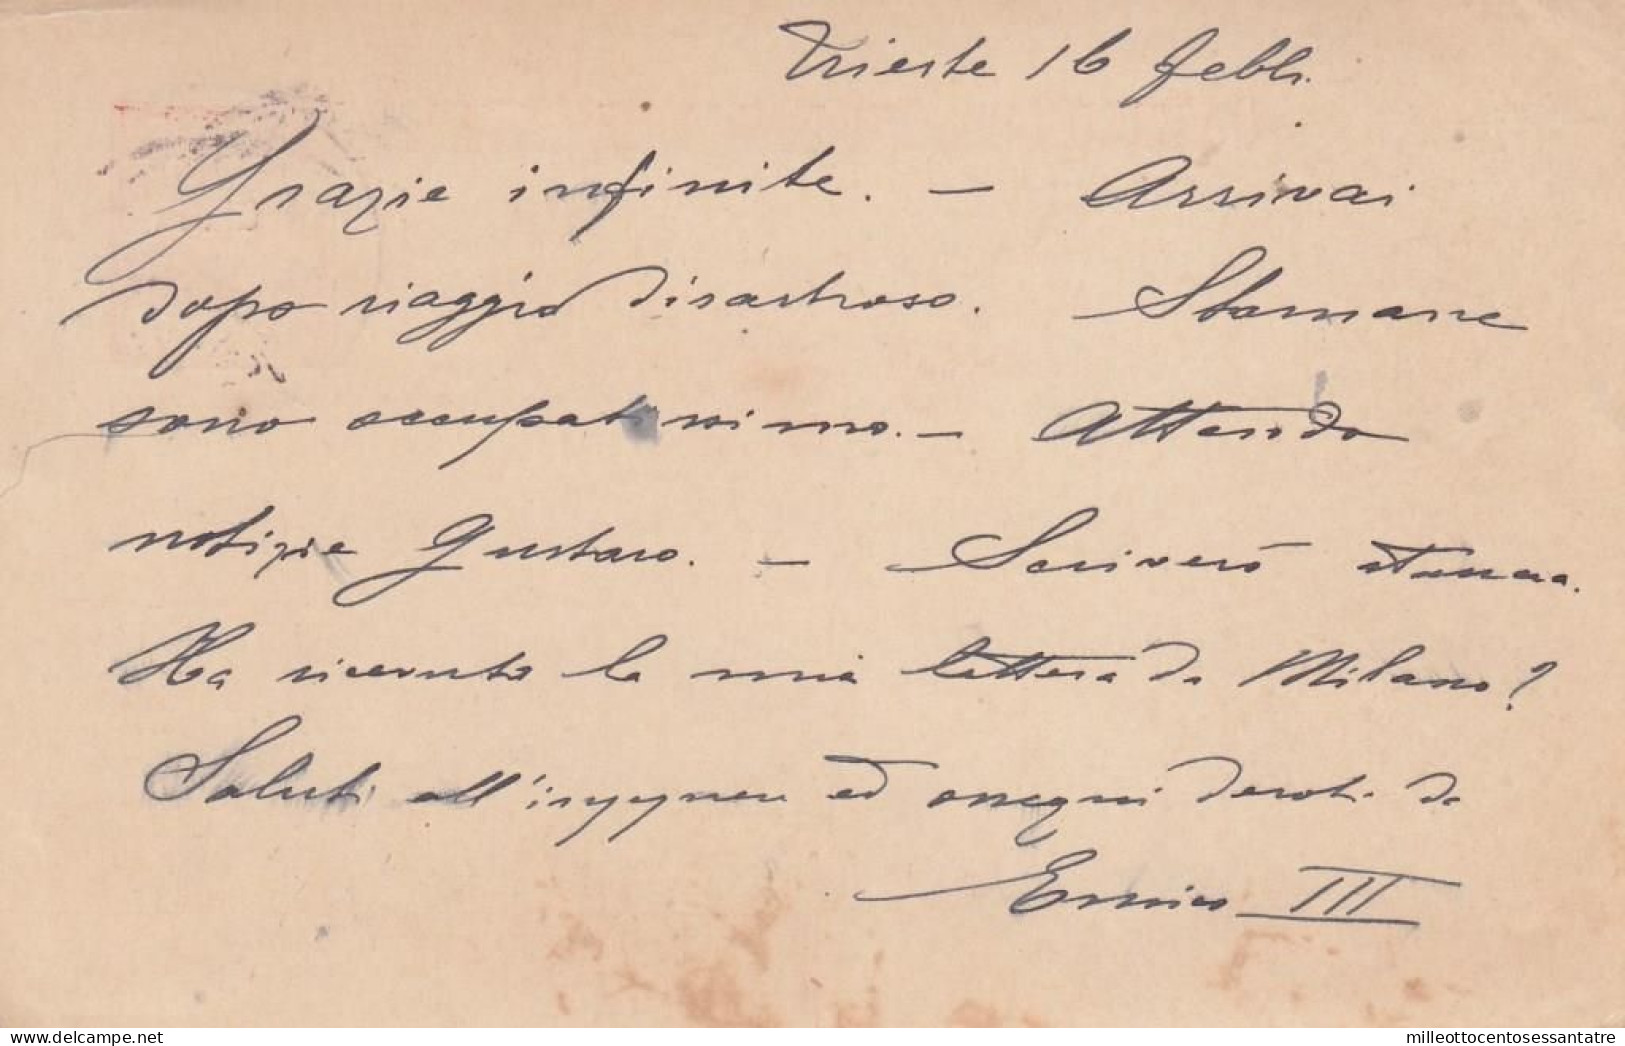 Trieste 16 febbr.
Grazie infinite. — Arrivai
dopo viaggio disastroso. Stamane
sono occupatissimo. — Attendo
notizie Gustavo. — Scriverò stassera.
Ha ricevuto la mia lettera da Milano?
Saluti all'ingegnere ed ossequi devoti da
Enrico III
milleottocentosessantatre